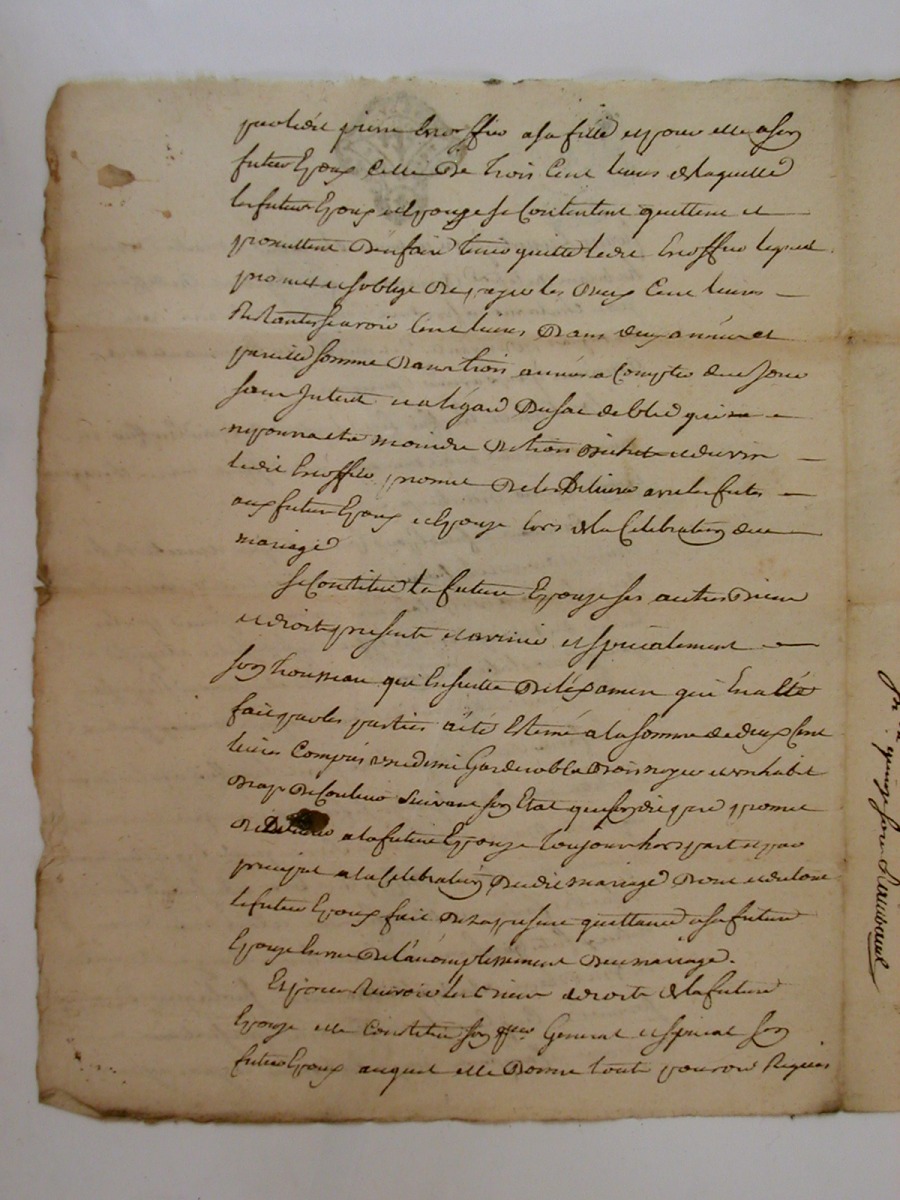 par ledit pierre Escoffier a sa fille et pour elle a son
futur Epoux Celle De trois Cent livres de laquelle
les futurs Epoux et Epouze se Contentent quittent et
promettent D'en faire tenir quitte ledit Escoffier lequel
promet et s'oblige De payer les Deux Cent livres
Restantes scavoir Cent livres Dans deux années et
pareille somme Dans trois années a Compter de ce jour
sans Interet et a légard Du sac de bled
moindre et du vin
ledit Escoffier promet De les Delivrer
aux futurs Epoux et Epouze lors de la Celebration du
mariage
Se Constitue la future Epouze ses autres Biens
et droits presents et avenir et specialement
son trousseau qui Ensuitte De l'examen qui En a été
fait par les parties a été Estimé a la somme de deux Cent
livres Compris une demi Garderobe Bois noyer et un habit
Drap De Couleur suivant son Etat que son dit pere promet
De Delivrer a la future Epouze toujours hors part et par
preciput a la Celebration Dudit mariage Dont et du tout
le futur Epoux fait Des a present quittance a sa future
Epouze Envue De l'accomplissement Du mariage.
Et pour Recevoir les Biens et droits de la future
Epouze elle Constitue son General et special son
futur Epoux auquel elle Donne tout pouvoir Requis
Raimbaud